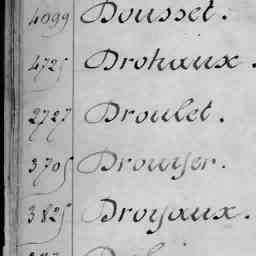 4099 Dousset.
4725 Drohaux.
2727 Droulet.
3705 Drouyer.
3825 Droyaux.